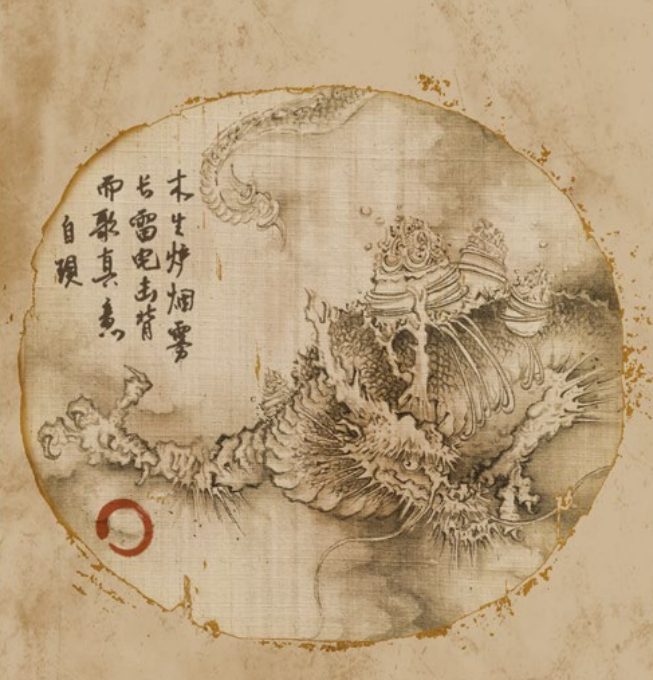 木生炉烟雾
长雷电击背
而歌真意
自